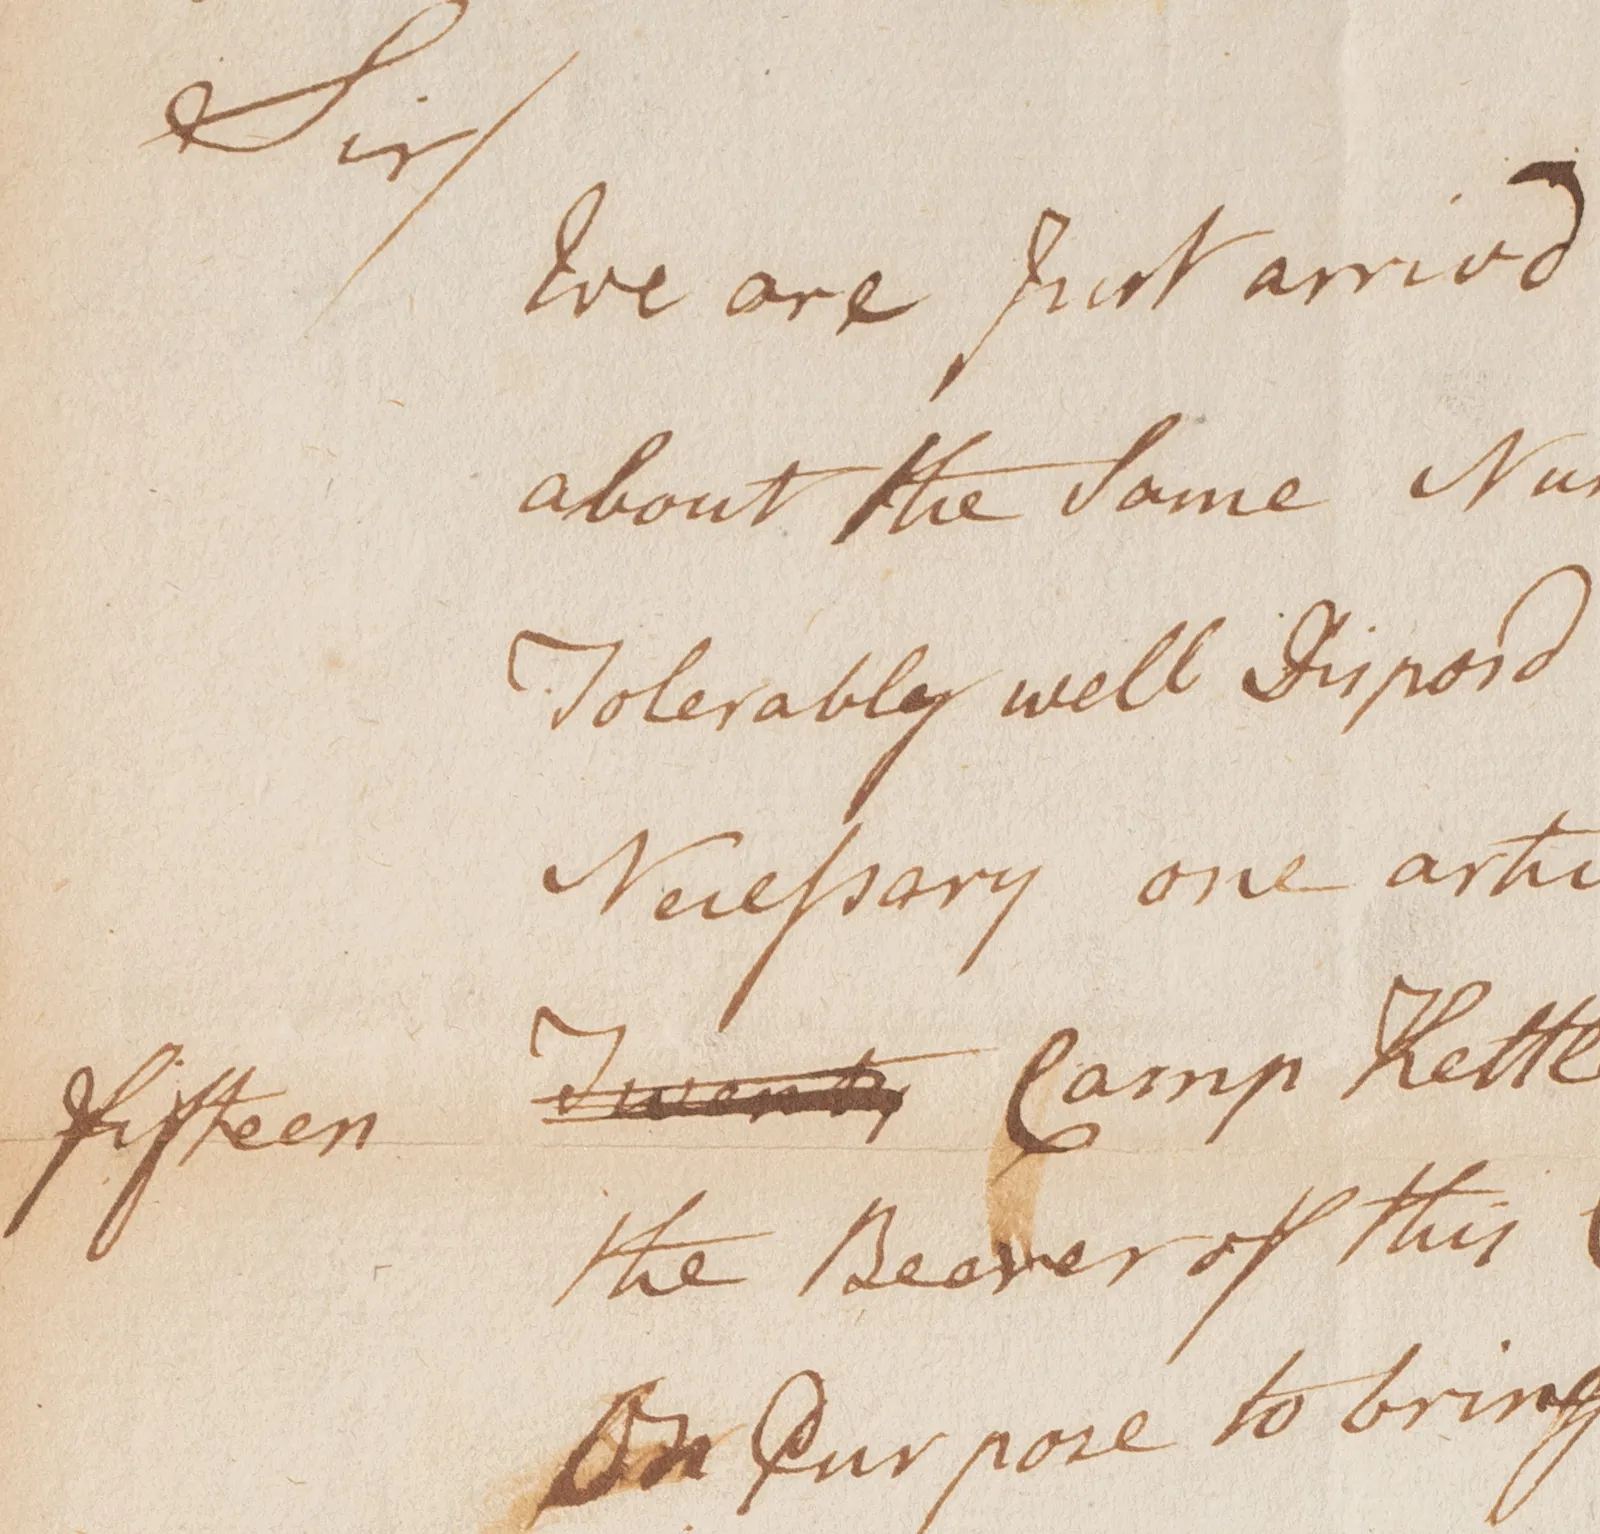 Sir/
We are Just arrivd
about the Same Nu
Tolerably well Disposd
Necessary one arti
fifteen Twenty Camp Kettle
the Beaver of this
On Purpose to bring